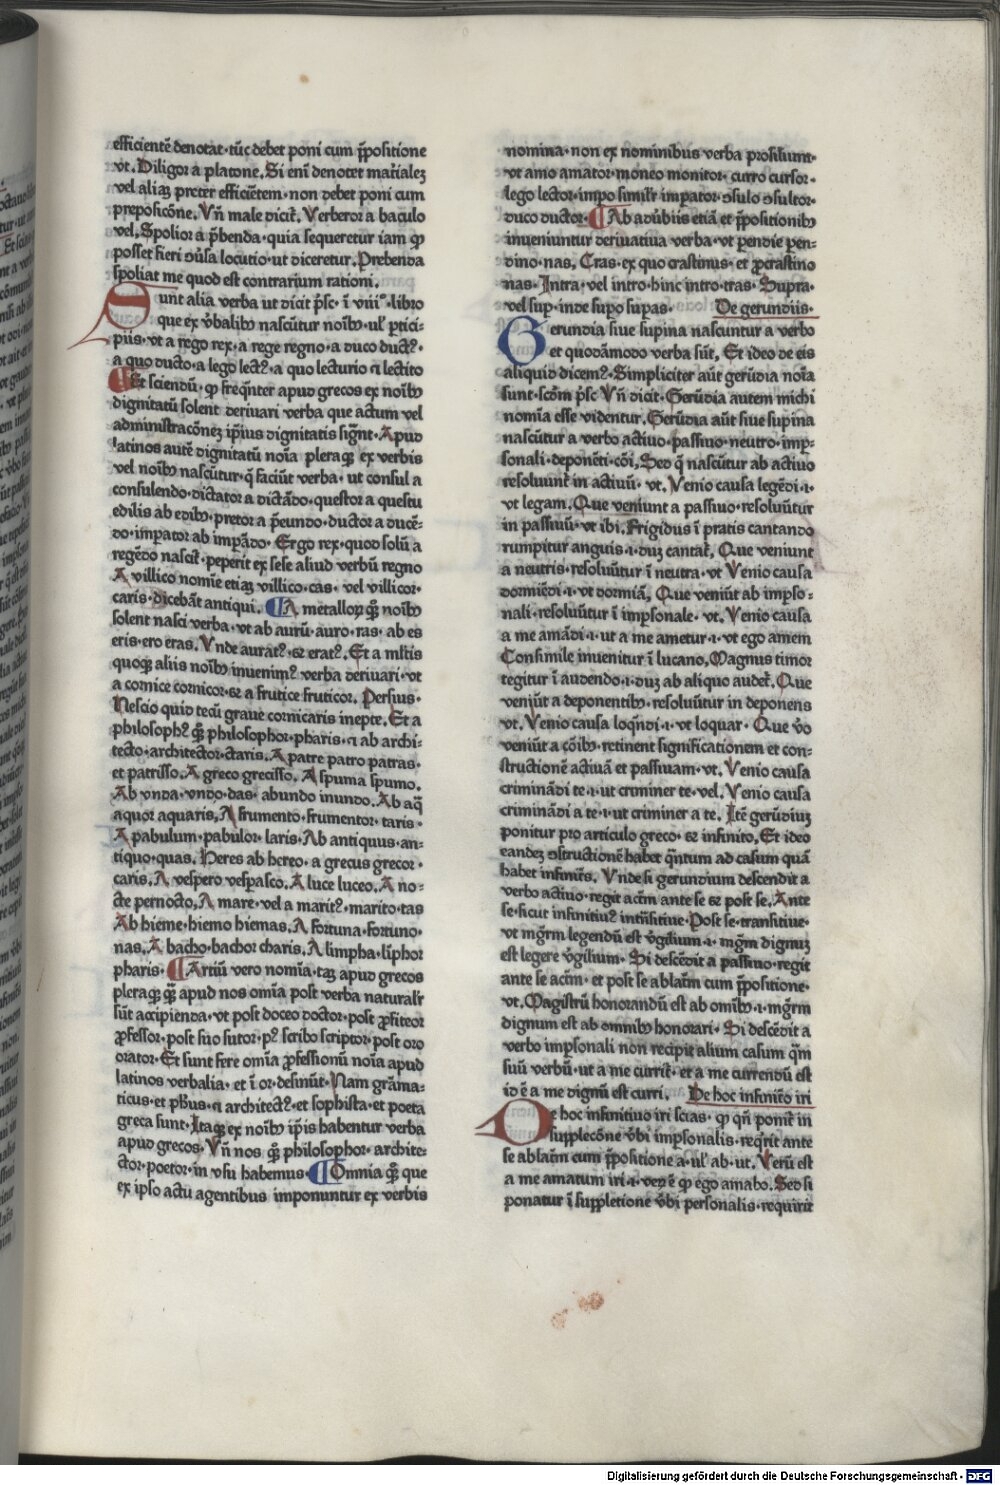 efficientē denotat · tūc debet poni cum p̄positione
vt. Diligor a platone. Si enī denotet mat̄ialez
vel aliaz preter efficiētem · non debet poni cum
preposicōne. Vn̄ male dicit̄. Verberor a baculo
vel. Spolior a p̄benda · quia sequeretur iam ꝙ
posset fieri ↄūsa locutio · ut diceretur. Prebenda
spoliat me quod est contrarium rationi.
Sunt alia verba ut dicit p̄sc · ī viii° · libro
que ex v̄balibꝰ nascūtur noībꝰ · ul' p̄tici-
piis · vt a rego rex · a rege regno · a duco duct⁹ ·
a quo ducto · a lego lect⁹ · a quo lecturio ⁊ lectito
Et sciendū · ꝙ freq̄nter apud grecos ex noībꝰ
dignitatū solent deriuari verba que actum vel
administracōnez ip̄ius dignitatis sign̄t · Apud
latinos autē dignitatū noīa pleraqꝫ ex verbis
vel noībꝰ nascūtur · q̄ faciūt verba · ut consul a
consulendo · dictator a dictādo · questor a questu
edilis ab edibꝰ · pretor a p̄eundo · ductor a ducē-
do · impator ab impādo · Ergo rex · quod solū a
regēdo nascit̄ · peperit ex sese aliud verbū regno
A villico nomīe etiaz villico · cas · vel villicor ·
caris · dicebāt antiqui. A metalloꝝ qꝫ noībꝰ
solent nasci verba · vt ab aurū · auro · ras · ab es
eris · ero eras. Vnde aurat⁹ · sꝫ erat⁹. Et a ml̄tis
quoqꝫ aliis noībꝰ inuenim⁹ verba deriuari · vt
a cornice cornicor · sꝫ a frutice fruticor. Persius ·
Nescio quid tecū graue cornicaris inepte. Et a
philosoph⁹ qꝫ philosophor · pharis · ⁊ ab archi-
tecto · architector · ctaris. A patre patro patras ·
et patrisso. A greco grecisso. A spuma spumo.
Ab vnda · vndo · das · abundo inundo. Ab aq̄
aquor aquaris. A frumento · frumentor · taris ·
A pabulum · pabulor · laris · Ab antiquus · an-
tiquo · quas. Heres ab hereo · a grecus grecor ·
caris. A vespero vespasco. A luce luceo. A no-
cte pernocto. A mare · vel a marit⁹ · marito · tas
Ab hieme · hiemo hiemas. A fortuna · fortuno ·
nas. A bacho · bachor charis. A limpha · līphor
pharis · Artiū vero nomīa · taꝫ apud grecos
pleraqꝫ qꝫ apud nos om̄ia post verba naturalr̄
sūt accipienda · vt post doceo doctor · post ꝓfiteor
ꝓfessor · post suo sutor · p⁹ scribo scriptor · post oro
orator · Et sunt fere om̄ia ꝓfessionū noīa apud
latinos verbalia · et ī or · desinūt · Nam grāma-
ticus · et phs · ⁊ architect⁹ · et sophista · et poeta
greca sunt · Itaqꝫ ex noībꝰ ip̄is habentur verba
apud grecos · Vn̄ nos qꝫ philosophor · archite-
ctor · poetor · in vsu habemus · Omnia qꝫ que
ex ipso actu agentibus imponuntur ex verbis
nomina · non ex nominibus verba prosiliunt ·
vt amo amator · moneo monitor · curro cursor ·
lego lector · impo simil'r impator · ↄsulo ↄsultor ·
duco ductor · Ab adūbiis etiā et p̄positionibꝰ
inueniuntur deriuatiua verba · vt pendie pen-
dino · nas. Cras · ex quo crastinus · et ꝓcrastino
nas · Intra · vel intro · hinc intro · tras · Supra ·
vel sup · inde supo supas · De gerundiis ·
Gerundia siue supina nascuntur a verbo
et quodāmodo verba sūt. Et ideo de eis
aliquid dicem⁹ · Simpliciter aūt gerūdia noīa
sunt · scdm̄ psc̄ Vn̄ dicit · Gerūdia autem michi
nomīa esse videntur. Gerūdia aūt siue supina
nascūtur a verbo actiuo · passiuo · neutro · imp-
sonali · deponēti · cōi. Sed q̄ nascūtur ab actiuo
resoluunt̄ in actiuū · vt. Venio causa legēdi · i ·
vt legam. Que veniunt a passiuo · resoluūtur
in passiuū · vt ibi. Frigidus ī pratis cantando
rumpitur anguis · i · duꝫ cantat̄. Que veniunt
a neutris · resoluūtur ī neutra · vt Venio causa
dormiēdi · i · vt dormiā. Que veniūt ab impso-
nali · resoluūtur ī impsonale · vt. Venio causa
a me amādi · i · ut a me ametur · i · vt ego amem
Consimile inuenitur ī lucano. Magnus timor
tegitur ī audendo · i · duꝫ ab aliquo audet̄. Que
veniūt a deponentibꝰ · resoluūtur in deponens
vt. Venio causa loq̄ndi · i · vt loquar · Que v̄o
veniūt a cōibꝰ · retinent significationem et con-
structionē actiuā et passiuam · vt. Venio causa
criminādi te · i · ut criminer te · vel. Venio causa
criminādi a te · i · ut criminer a te. Itē gerūdiuꝫ
ponitur pro articulo greco · sꝫ infinito. Et ideo
eandeꝫ ↄstructionē habet q̄ntum ad casum quā
habet infinit̄s. Vnde si gerundium descendit a
verbo actiuo · regit actm̄ ante se sꝫ post se. Ante
se · sicut infinitiu⁹ intn̄sitiue · Post se · transitiue ·
vt mgr̄m legendū est v̄gilium · i · mgr̄m dignuꝫ
est legere v̄gilium · Si descēdit a passiuo · regit
ante se actm̄ · et post se ablatm̄ cum p̄positione ·
vt. Magistrū honorandū est ab om̄ibꝰ · i · mgr̄m
dignum est ab omnibꝰ honorari · Si descēdit a
verbo impsonali non recipit alium casum q̄m
suū verbū · ut a me currit̄ · et a me currendū est
id ē a me dignū est curri. De hoc infinito iri
De hoc infinitiuo iri scias · ꝙ qn̄ ponit̄ in
supplecōne v̄bi impsonalis · req̄rit ante
se ablatm̄ cum p̄positione a · ul' ab · ut. Verū est
a me amatum iri · i · veꝝ ē ꝙ ego amabo. Sed si
ponatur ī suppletione v̄bi personalis · requirit
Digitalisierung gefördert durch die Deutsche Forschungsgemeinschaft - DFG